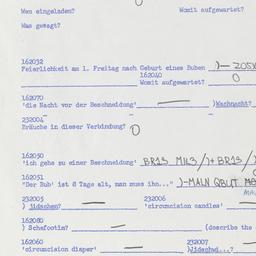 Wen eingeladen? Womit aufgewartet?
Was gesagt?
162032
Feierlichkeit am 1. Freitag nach Geburt eines Buben )— ZOSX
162040
Womit aufgewartet? O
162070
'die Nacht vor der Beschneidung' — )Wachnacht?
232004
Bräuche in dieser Verbindung? O
162050
'ich gehe zu einer Beschneidung' BR13 MIL3/)+ BR13/
162051
"Der Bub' ist 8 Tage alt, man muss ihn..." )-MALN
232005 232006
) Jidschen? 'circumcision candles' —
162080
) Schafootim? — (describe the
162060 232007
'circumcision diaper' — )Jidschwd...?